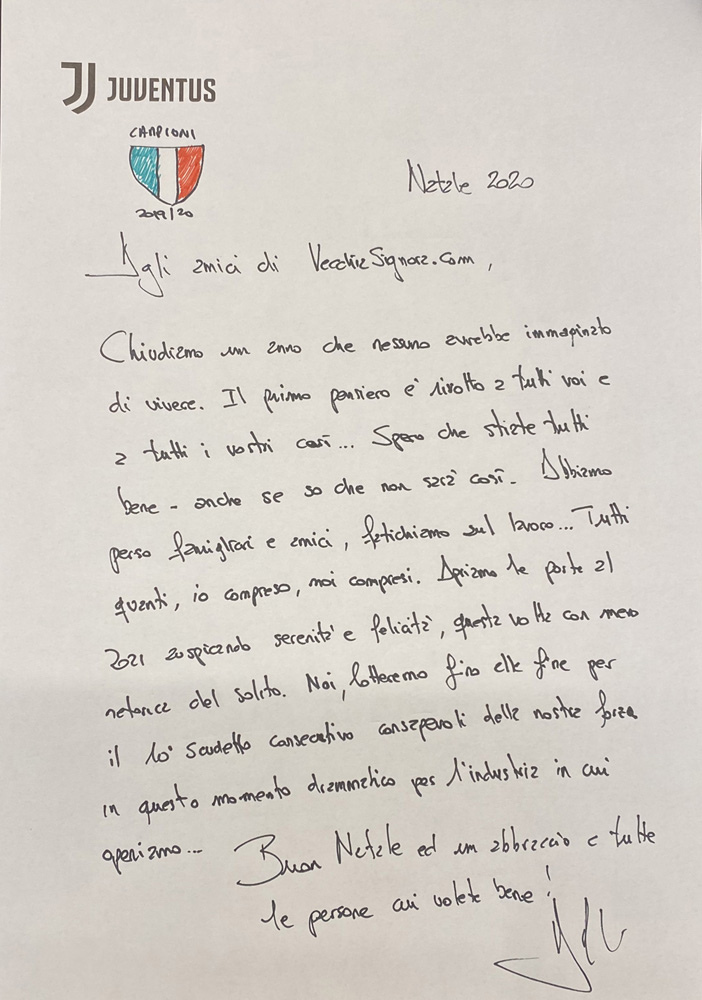 JUVENTUS
CAMPIONI
2019/20
Natale 2020
Agli amici di VecchiaSignora.com,
Chiudiamo un anno che nessuno avrebbe immaginato
di vivere. Il primo pensiero è rivolto a tutti voi e
a tutti i vostri cari... Spero che stiate tutti
bene - anche se so che non sarà così. Abbiamo
perso famigliari e amici, fatichiamo sul lavoro... Tutti
quanti, io compreso, noi compresi. Apriamo le porte al
2021 auspicando serenità e felicità, questa volta con meno
retorica del solito. Noi, lotteremo fino alla fine per
il 10° Scudetto consecutivo consapevoli della nostra forza
in questo momento drammatico per l'industria in cui
operiamo... Buon Natale ed un abbraccio a tutte
le persone cui volete bene!